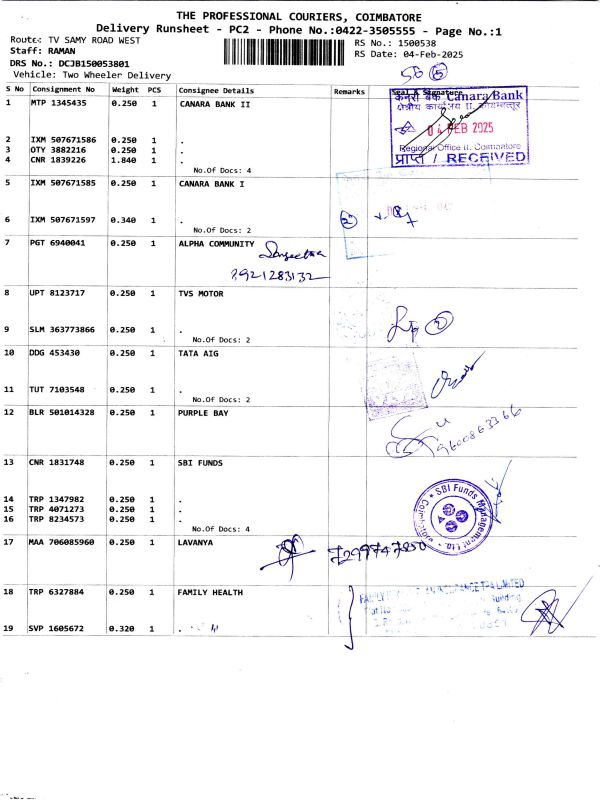 THE PROFESSIONAL COURIERS, COIMBATORE
Delivery Runsheet - PC2 - Phone No.:0422-3505555 - Page No.:1
Route: TV SAMY ROAD WEST
RS No.: 1500538
Staff: RAMAN
RS Date: 04-Feb-2025
DRS No.: DCJB150053801
Vehicle: Two Wheeler Delivery
S No Consignment No Weight PCS Consignee Details Remarks Seal & Signature
1 MTP 1345435 0.250 1 CANARA BANK II
केनरा बैंक Canara Bank
04 FEB 2025
Regional Office II, Coimbatore
प्राप्त / RECEIVED
2 IXM 507671586 0.250 1 .
3 OTY 3882216 0.250 1 .
4 CNR 1839226 1.840 1 .
No.Of Docs: 4
5 IXM 507671585 0.250 1 CANARA BANK I
6 IXM 507671597 0.340 1 .
No.Of Docs: 2
7 PGT 6940041 0.250 1 ALPHA COMMUNITY
8921283132
8 UPT 8123717 0.250 1 TVS MOTOR
9 SLM 363773866 0.250 1 .
No.Of Docs: 2
10 DDG 453430 0.250 1 TATA AIG
11 TUT 7103548 0.250 1 .
No.Of Docs: 2
12 BLR 501014328 0.250 1 PURPLE BAY
9600863366
13 CNR 1831748 0.250 1 SBI FUNDS
SBI Funds Management Ltd.
14 TRP 1347982 0.250 1 .
15 TRP 4071273 0.250 1 .
16 TRP 8234573 0.250 1 .
No.Of Docs: 4
17 MAA 706085960 0.250 1 LAVANYA
7299747850
18 TRP 6327884 0.250 1 FAMILY HEALTH
INSURANCE TPA LIMITED
19 SVP 1605672 0.320 1 .